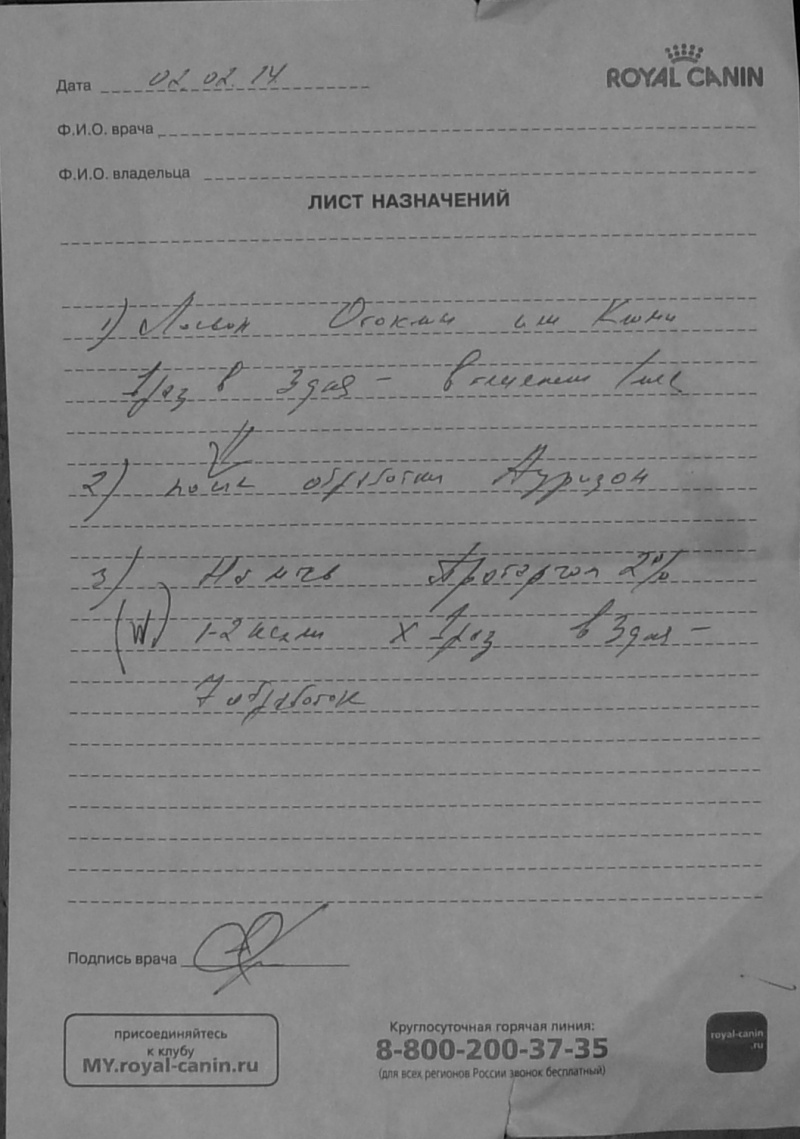 Дата 02.02.14
ROYAL CANIN
Ф.И.О. врача
Ф.И.О. владельца
ЛИСТ НАЗНАЧЕНИЙ
1) Лосьон Отоклин или Клини
1 раз в 3 дня – в течение 1 мес
2) после обработки Ауризон
3) Протаргол 2%
1-2 капли х 1 раз в 3 дня –
7 обработок
Подпись врача
присоединяйтесь
к клубу
MY.royal-canin.ru
Круглосуточная горячая линия:
8-800-200-37-35
(для всех регионов России звонок бесплатный)
royal-canin
.ru